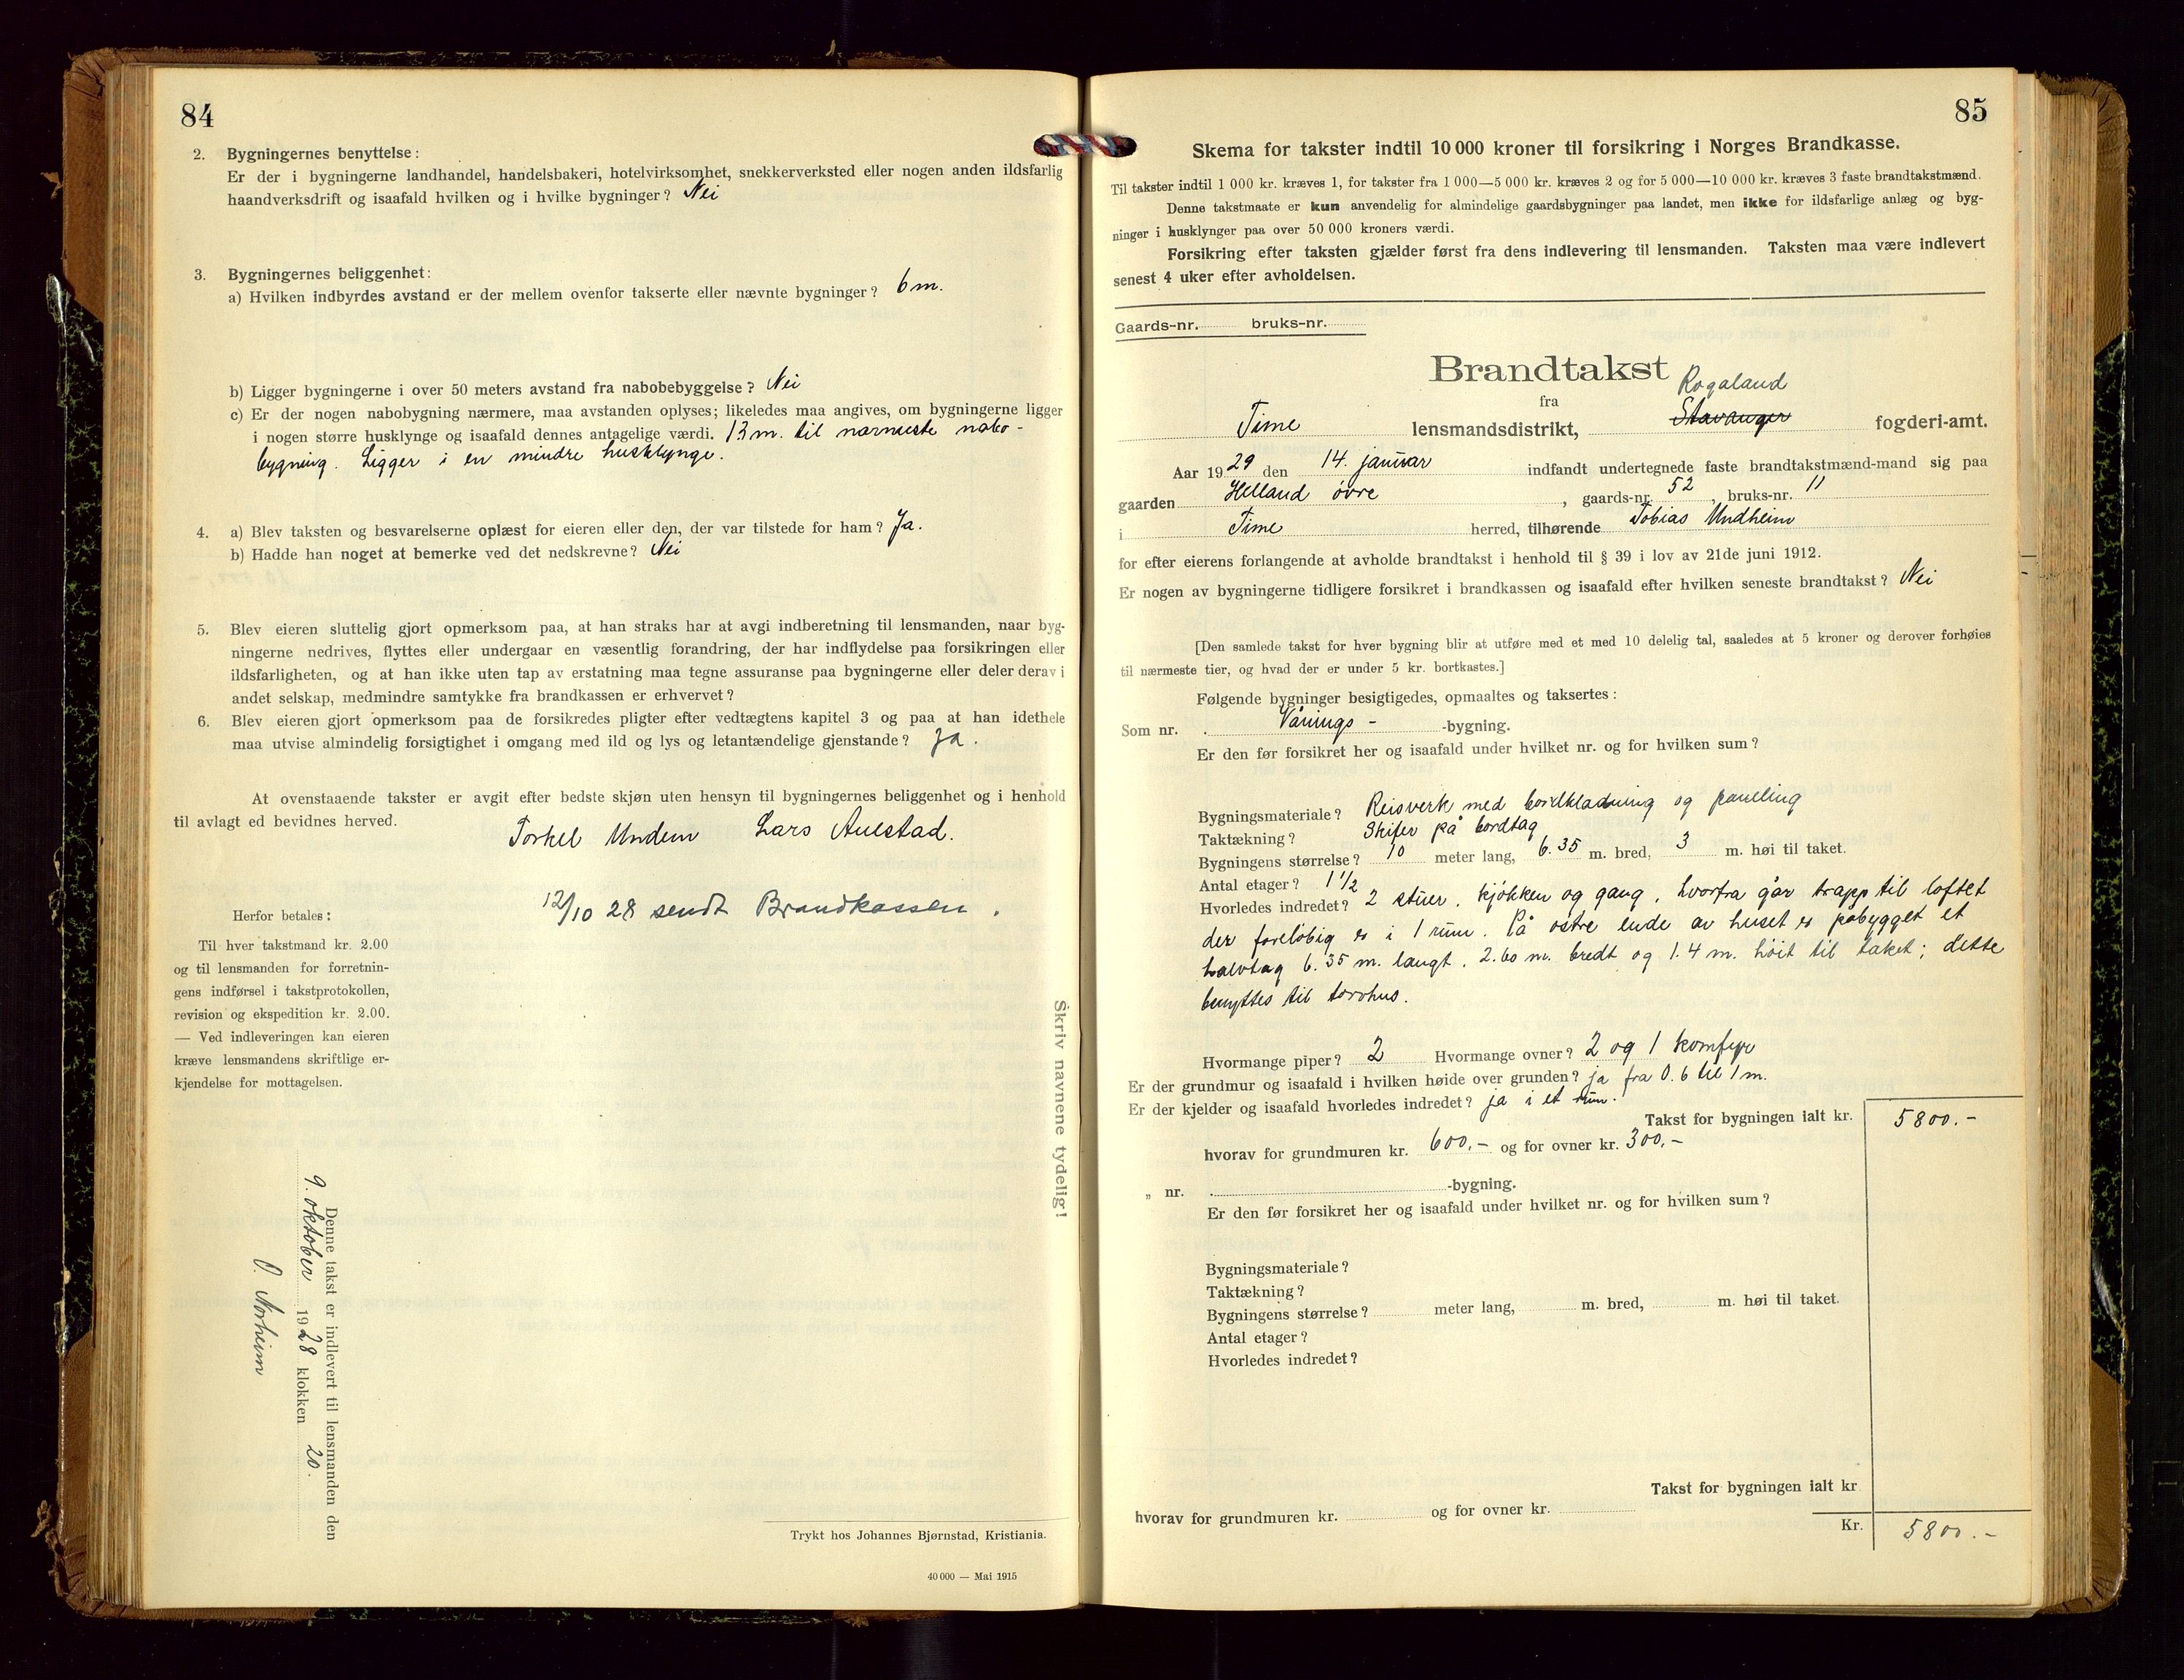 84
2. Bygningernes benyttelse:
Er der i bygningerne landhandel, handelsbakeri, hotelvirksomhet, snekkerverksted eller nogen anden ildsfarlig
haandverksdrift og isaafald hvilken og i hvilke bygninger? Nei
3. Bygningernes beliggenhet:
a) Hvilken indbyrdes avstand er der mellem ovenfor takserte eller nævnte bygninger? 6 m.
b) Ligger bygningerne i over 50 meters avstand fra nabobebyggelse? Nei
c) Er der nogen nabobygning nærmere, maa avstanden oplyses; likeledes maa angives, om bygningerne ligger
i nogen større husklynge og isaafald dennes antagelige værdi. 13 m. til nærmeste nabo-
bygning. Ligger i en mindre husklynge.
4. a) Blev taksten og besvarelserne oplæst for eieren eller den, der var tilstede for ham? Ja.
b) Hadde han noget at bemerke ved det nedskrevne? Nei
5. Blev eieren sluttelig gjort opmerksom paa, at han straks har at avgi indberetning til lensmanden, naar byg-
ningerne nedrives, flyttes eller undergaar en væsentlig forandring, der har indflydelse paa forsikringen eller
ildsfarligheten, og at han ikke uten tap av erstatning maa tegne assuranse paa bygningerne eller deler derav i
andet selskap, medmindre samtykke fra brandkassen er erhvervet?
6. Blev eieren gjort opmerksom paa de forsikredes pligter efter vedtægtens kapitel 3 og paa at han idethele
maa utvise almindelig forsigtighet i omgang med ild og lys og letantændelige gjenstande? Ja.
At ovenstaaende takster er avgit efter bedste skjøn uten hensyn til bygningernes beliggenhet og i henhold
til avlagt ed bevidnes herved.
Torkel Undem Lars Aulestad.
12/10 28 sendt Brandkassen.
Herfor betales:
Til hver takstmand kr. 2.00
og til lensmanden for forretnin-
gens indførsel i takstprotokollen,
revision og ekspedition kr. 2.00.
— Ved indleveringen kan eieren
kræve lensmandens skriftlige er-
kjendelse for mottagelsen.
Skriv navnene tydelig!
Denne takst er indlevert til lensmanden den
9. oktober 1928 klokken 20.
O. Norheim
Trykt hos Johannes Bjørnstad, Kristiania.
40 000 — Mai 1915
85
Skema for takster indtil 10 000 kroner til forsikring i Norges Brandkasse.
Til takster indtil 1 000 kr. kræves 1, for takster fra 1 000—5 000 kr. kræves 2 og for 5 000—10 000 kr. kræves 3 faste brandtakstmænd.
Denne takstmaate er kun anvendelig for almindelige gaardsbygninger paa landet, men ikke for ildsfarlige anlæg og byg-
ninger i husklynger paa over 50 000 kroners værdi.
Forsikring efter taksten gjælder først fra dens indlevering til lensmanden. Taksten maa være indlevert
senest 4 uker efter avholdelsen.
Gaards-nr. bruks-nr.
Brandtakst
fra Rogaland
Time lensmandsdistrikt, Stavanger fogderi-amt.
Aar 1929 den 14. januar indfandt undertegnede faste brandtakstmænd-mand sig paa
gaarden Helland øvre, gaards-nr. 52, bruks-nr. 11
i Time herred, tilhørende Tobias Undheim
for efter eierens forlangende at avholde brandtakst i henhold til § 39 i lov av 21de juni 1912.
Er nogen av bygningerne tidligere forsikret i brandkassen og isaafald efter hvilken seneste brandtakst? Nei
[Den samlede takst for hver bygning blir at utføre med et med 10 delelig tal, saaledes at 5 kroner og derover forhøies
til nærmeste tier, og hvad der er under 5 kr. bortkastes.]
Følgende bygninger besigtigedes, opmaaltes og taksertes:
Som nr. . Vånings- -bygning.
Er den før forsikret her og isaafald under hvilket nr. og for hvilken sum?
Bygningsmateriale? Reisverk med bordklædning og paneling
Taktækning? Skifer på bordtag
Bygningens størrelse? 10 meter lang, 6.35 m. bred, 3 m. høi til taket.
Antal etager? 1 1/2
Hvorledes indredet? 2 stuer, kjøkken og gang, hvorfra går trapp til loftet
der foreløbig er i 1 rum. På østre ende av huset er påbygget et
halvtag 6.35 m. langt, 2.60 m. bredt og 1.4 m. høit til taket; dette
benyttes til torvhus.
Hvormange piper? 2 Hvormange ovner? 2 og 1 komfyr
Er der grundmur og isaafald i hvilken høide over grunden? ja fra 0.6 til 1 m.
Er der kjelder og isaafald hvorledes indredet? ja i et rum.
Takst for bygningen ialt kr. 5800.-
hvorav for grundmuren kr. 600,- og for ovner kr. 300,-
„ nr. . -bygning.
Er den før forsikret her og isaafald under hvilket nr. og for hvilken sum?
Bygningsmateriale?
Taktækning?
Bygningens størrelse? meter lang, m. bred, m. høi til taket.
Antal etager?
Hvorledes indredet?
Takst for bygningen ialt kr
hvorav for grundmuren kr. og for ovner kr.
Kr. 5800.-